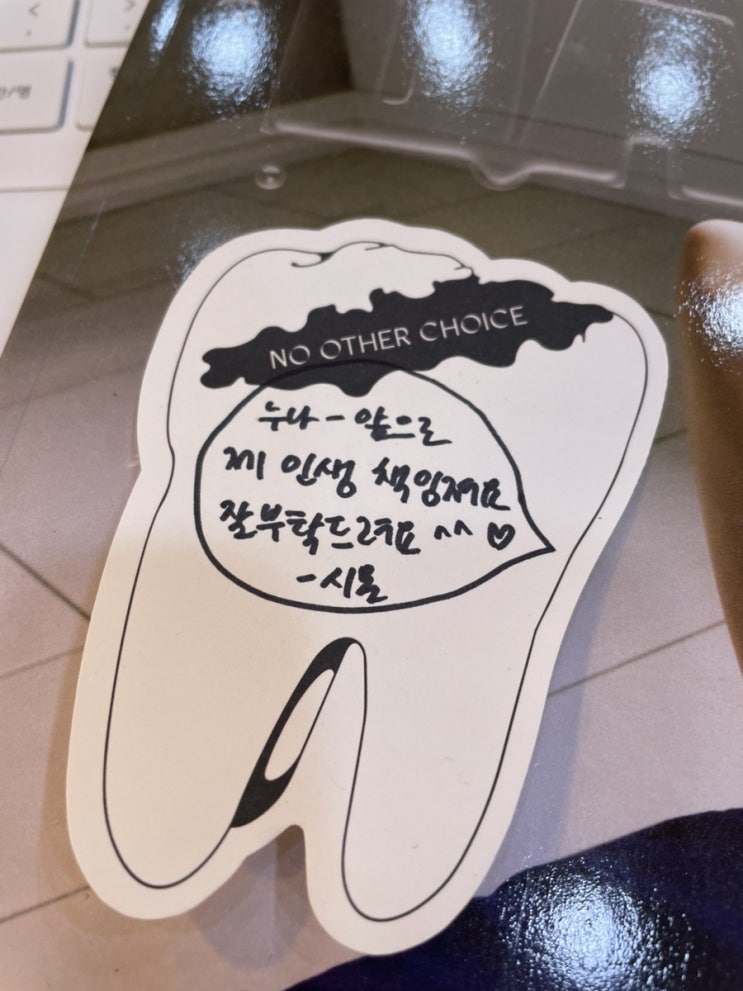 NO OTHER CHOICE
누나 - 앞으로
제 인생 책임져요
잘부탁드려요 ^^ ♡
-시몰